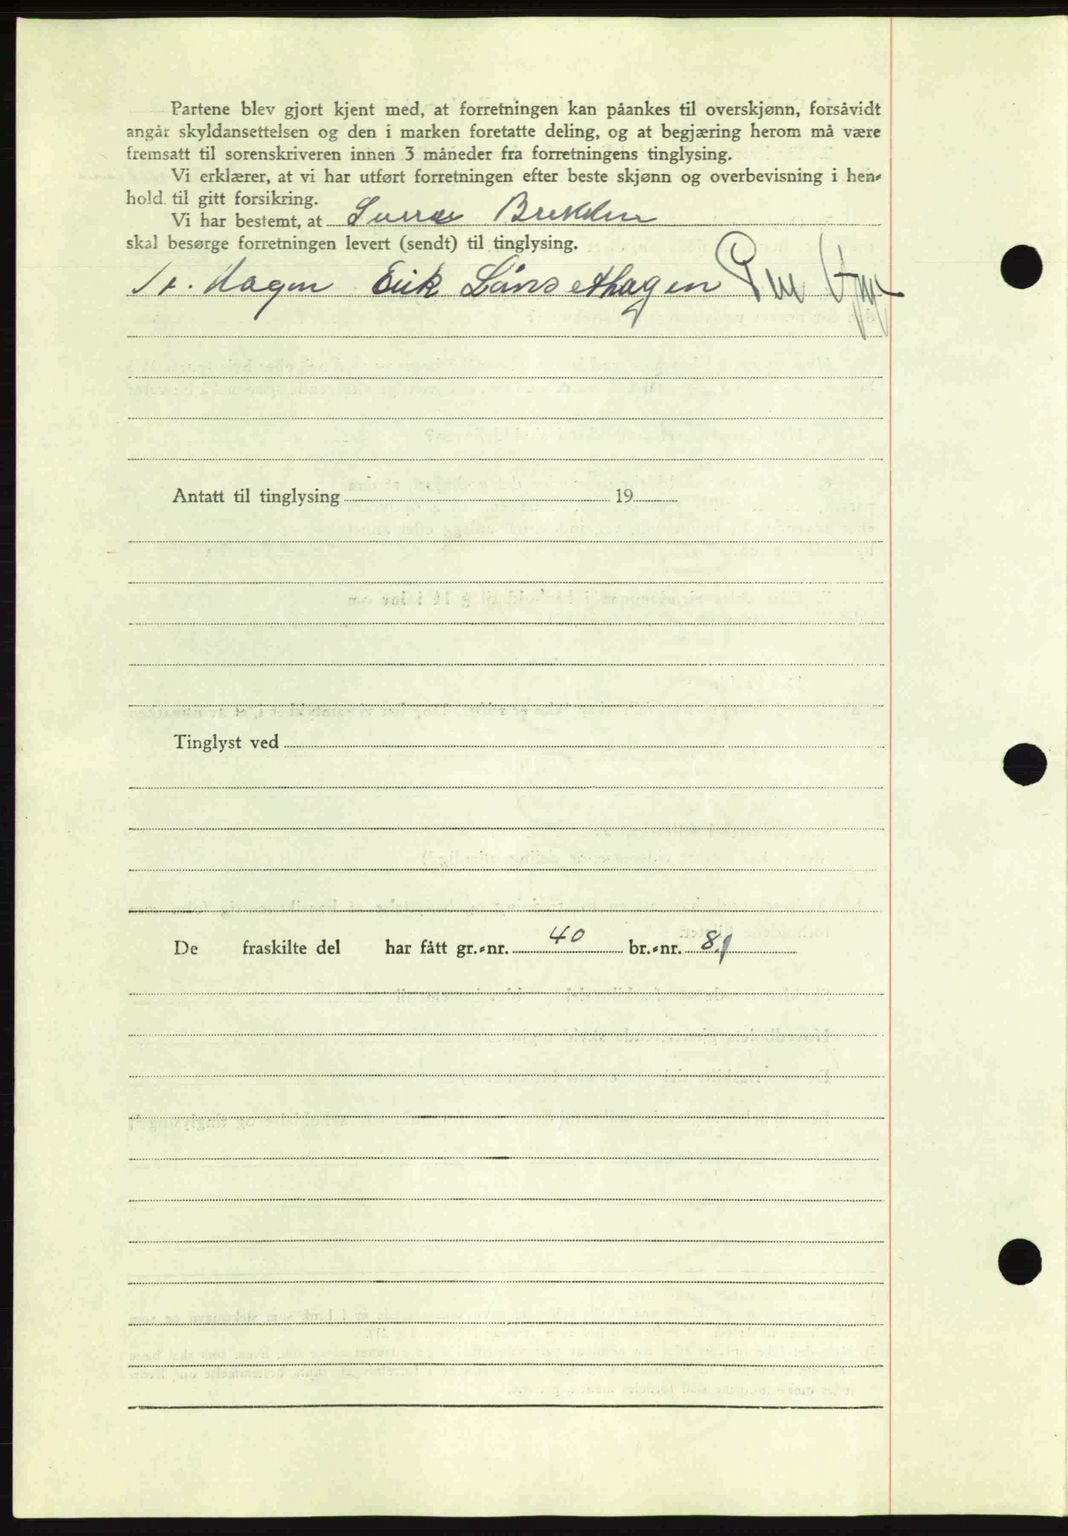 Partene blev gjort kjent med, at forretningen kan påankes til overskjønn, forsåvidt
angår skyldansettelsen og den i marken foretatte deling, og at begjæring herom må være
fremsatt til sorenskriveren innen 3 måneder fra forretningens tinglysing.
Vi erklærer, at vi har utført forretningen efter beste skjønn og overbevisning i hen-
hold til gitt forsikring.
Vi har bestemt, at Sverre Brekken
skal besørge forretningen levert (sendt) til tinglysing.
Hagen Erik Lånsethagen
Antatt til tinglysing 19
Tinglyst ved
De fraskilte del har fått gr.-nr. 40 br.-nr. 81